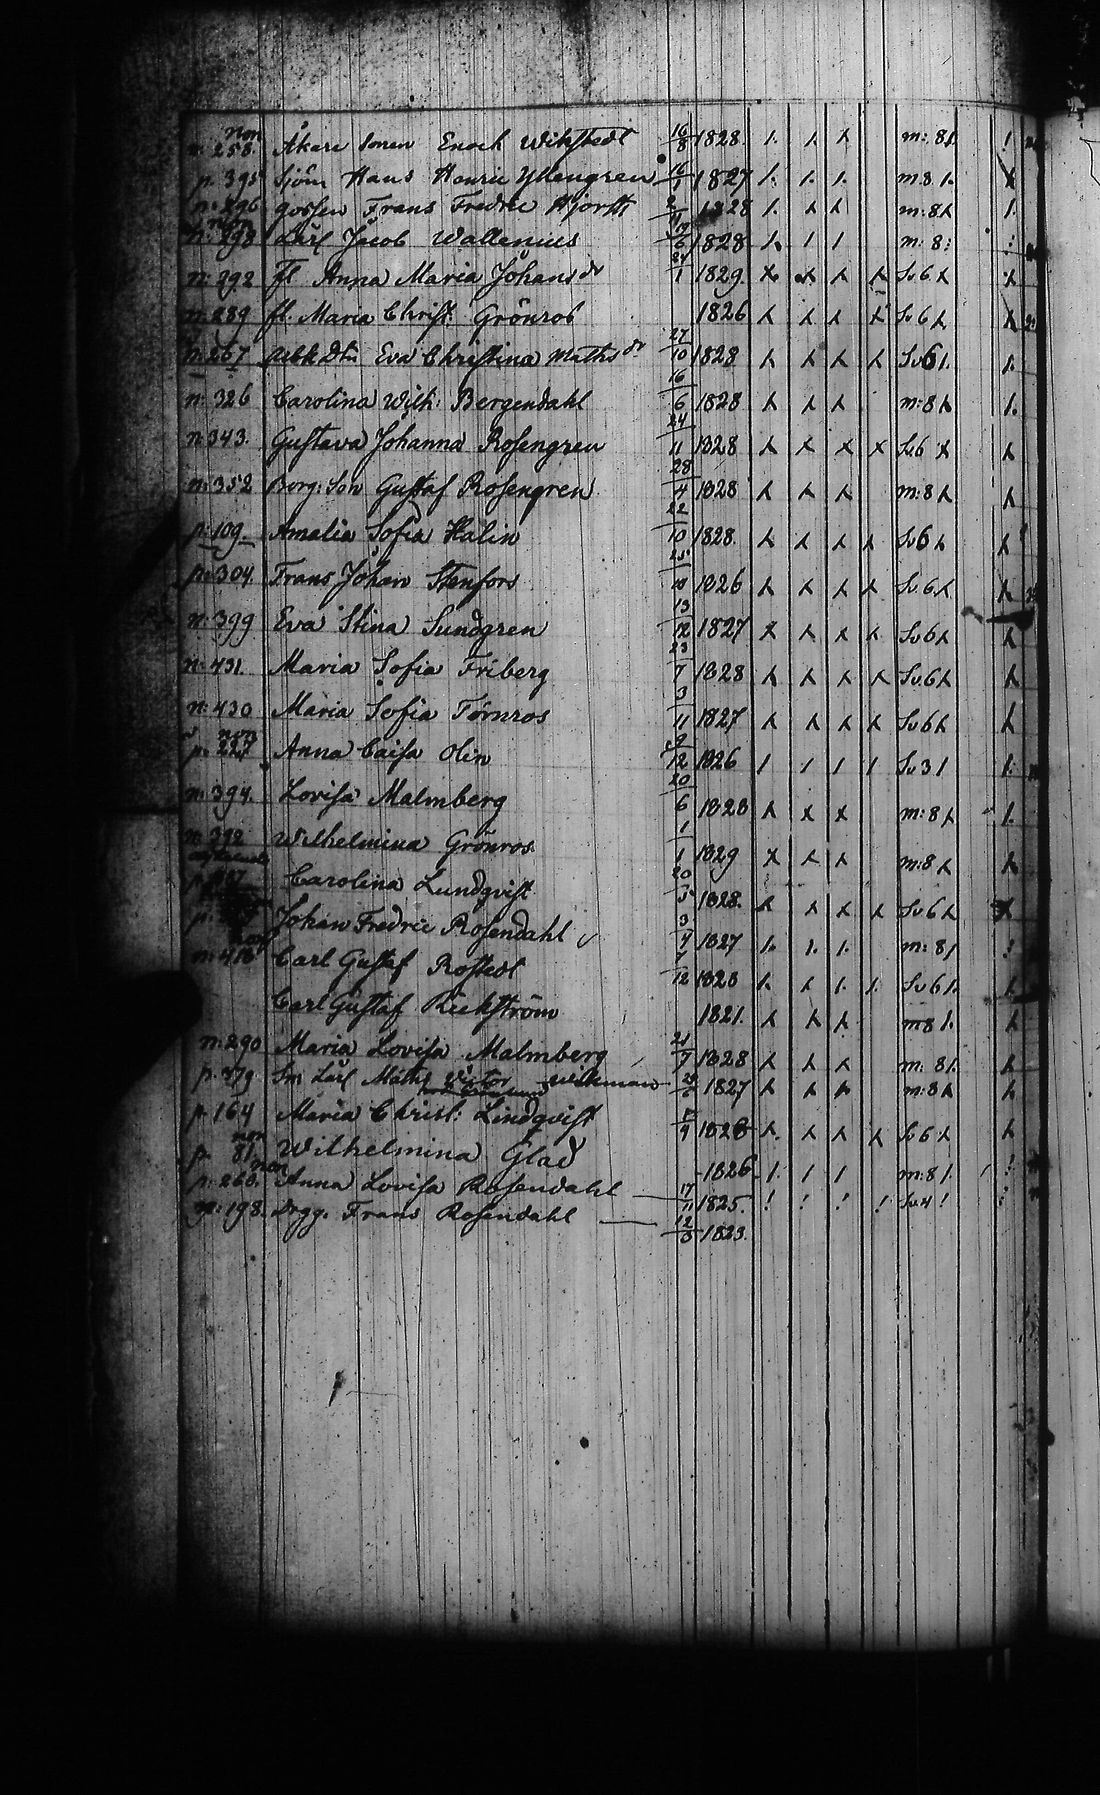 non
n: 258. Åkare sonen Enoch Wikstedt 16/8 1828. 1. 1 x m: 81
p. 395 Sjöm Hans Henric Yllengren 16/1 1827 1. 1. 1. m 8 1.
p: 296 gossen Frans Fredric Hjorth 2/11 1828 1. x x m: 8 x 1.
n: 298 Lärl Jacob Wallenius 19/6 1828 1. 1 1 m: 8:
n: 292 fl Anna Maria Johans dr 24/1 1829. x x x x Sv 6 x x
n: 289 fl. Maria Christ: Grönros 1826 x x x x Sv 6 x x
n: 267 Arbk Dtr Eva Christina Maths dr 27/10 1828 x x x x Sv 6 1. 1.
n: 326 Carolina Wilh: Bergendahl 16/6 1828 x x x m: 8 x 1.
n: 343. Gustava Johanna Rosengren 24/11 1828 x x x x Sv 6 x x
n: 352 Borg: Son Gustaf Rosengren 28/4 1828 x x x m: 8 x x
p. 109 Amalia Sofia Halin 22/10 1828. x x x x Sv 6 x x
p: 304. Frans Johan Stenfors 1826 x x x x Sv 6 x x
n: 399 Eva Stina Sundgren 13/12 1827 x x x x Sv 6 x x
n: 431. Maria Sofia Friberg 23/7 1828 x x x x Sv. 6 x x
n: 430 Maria Sofia Törnros 3/11 1827 x x x x Sv 6 x x
non
p. 227 Anna Caisa Olin 9/12 1826 1 1 1 1 Sv 3 1 1.
n: 394. Lovisa Malmberg 20/6 1828 x x x m: 8 x 1.
n: 392 Wilhelmina Grönros 1/1 1829 x x x m: 8 x x
Carolina Lundqvist 20/5 1828. x x x x Sv 6 x x
Johan Fredric Rosendahl 3/4 1827 1. 1. 1. m: 8 1
Carl Gustaf Rostedt 12 1828 1. x 1. 1. Sv 6 1. x
Carl Gustaf Rickström 1821. x x x m 8 1. x
n: 290 Maria Lovisa Malmberg 21/9 1828 x x x m: 8 1. x
p. 279 Sm Lärl Maths Victor Wikman 1827 x x x m: 8 x x
p 164 Maria Christ: Lindqvist 1828 x. x x x Sv 6 x x
non
p 81. Wilhelmina Glad 1826 1. 1 1 m: 8 1.
non
p: 260. Anna Lovisa Rosendahl 17/11 1825. ! ! ! ! Sv. 4 !
n: 198. drgg. Frans Rosendahl 1823.